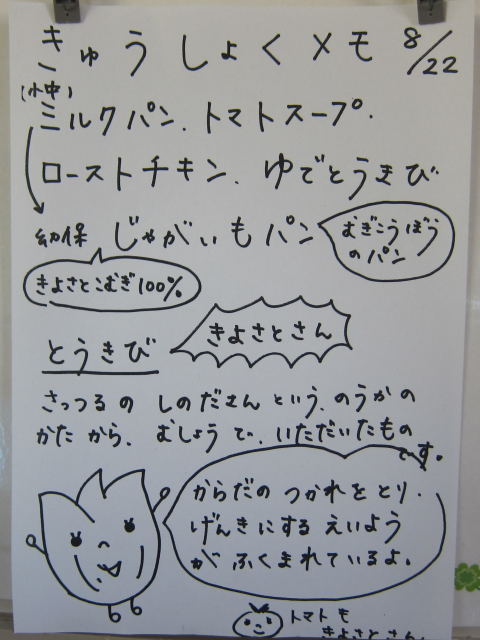 きゅうしょくメモ 8/22
(小中)
ミルクパン、トマトスープ、
ローストチキン、ゆでとうきび
幼保 じゃがいもパン
むぎこうぼう
のパン
きよさとこむぎ100%
とうきび
きよさとさん
さっつるの しのださんという、のうかの
かたから、むしょうで、いただいたもの
です。
からだの つかれをとり、
げんきにする えいよう
が ふくまれているよ。
トマトも
きよさとさん